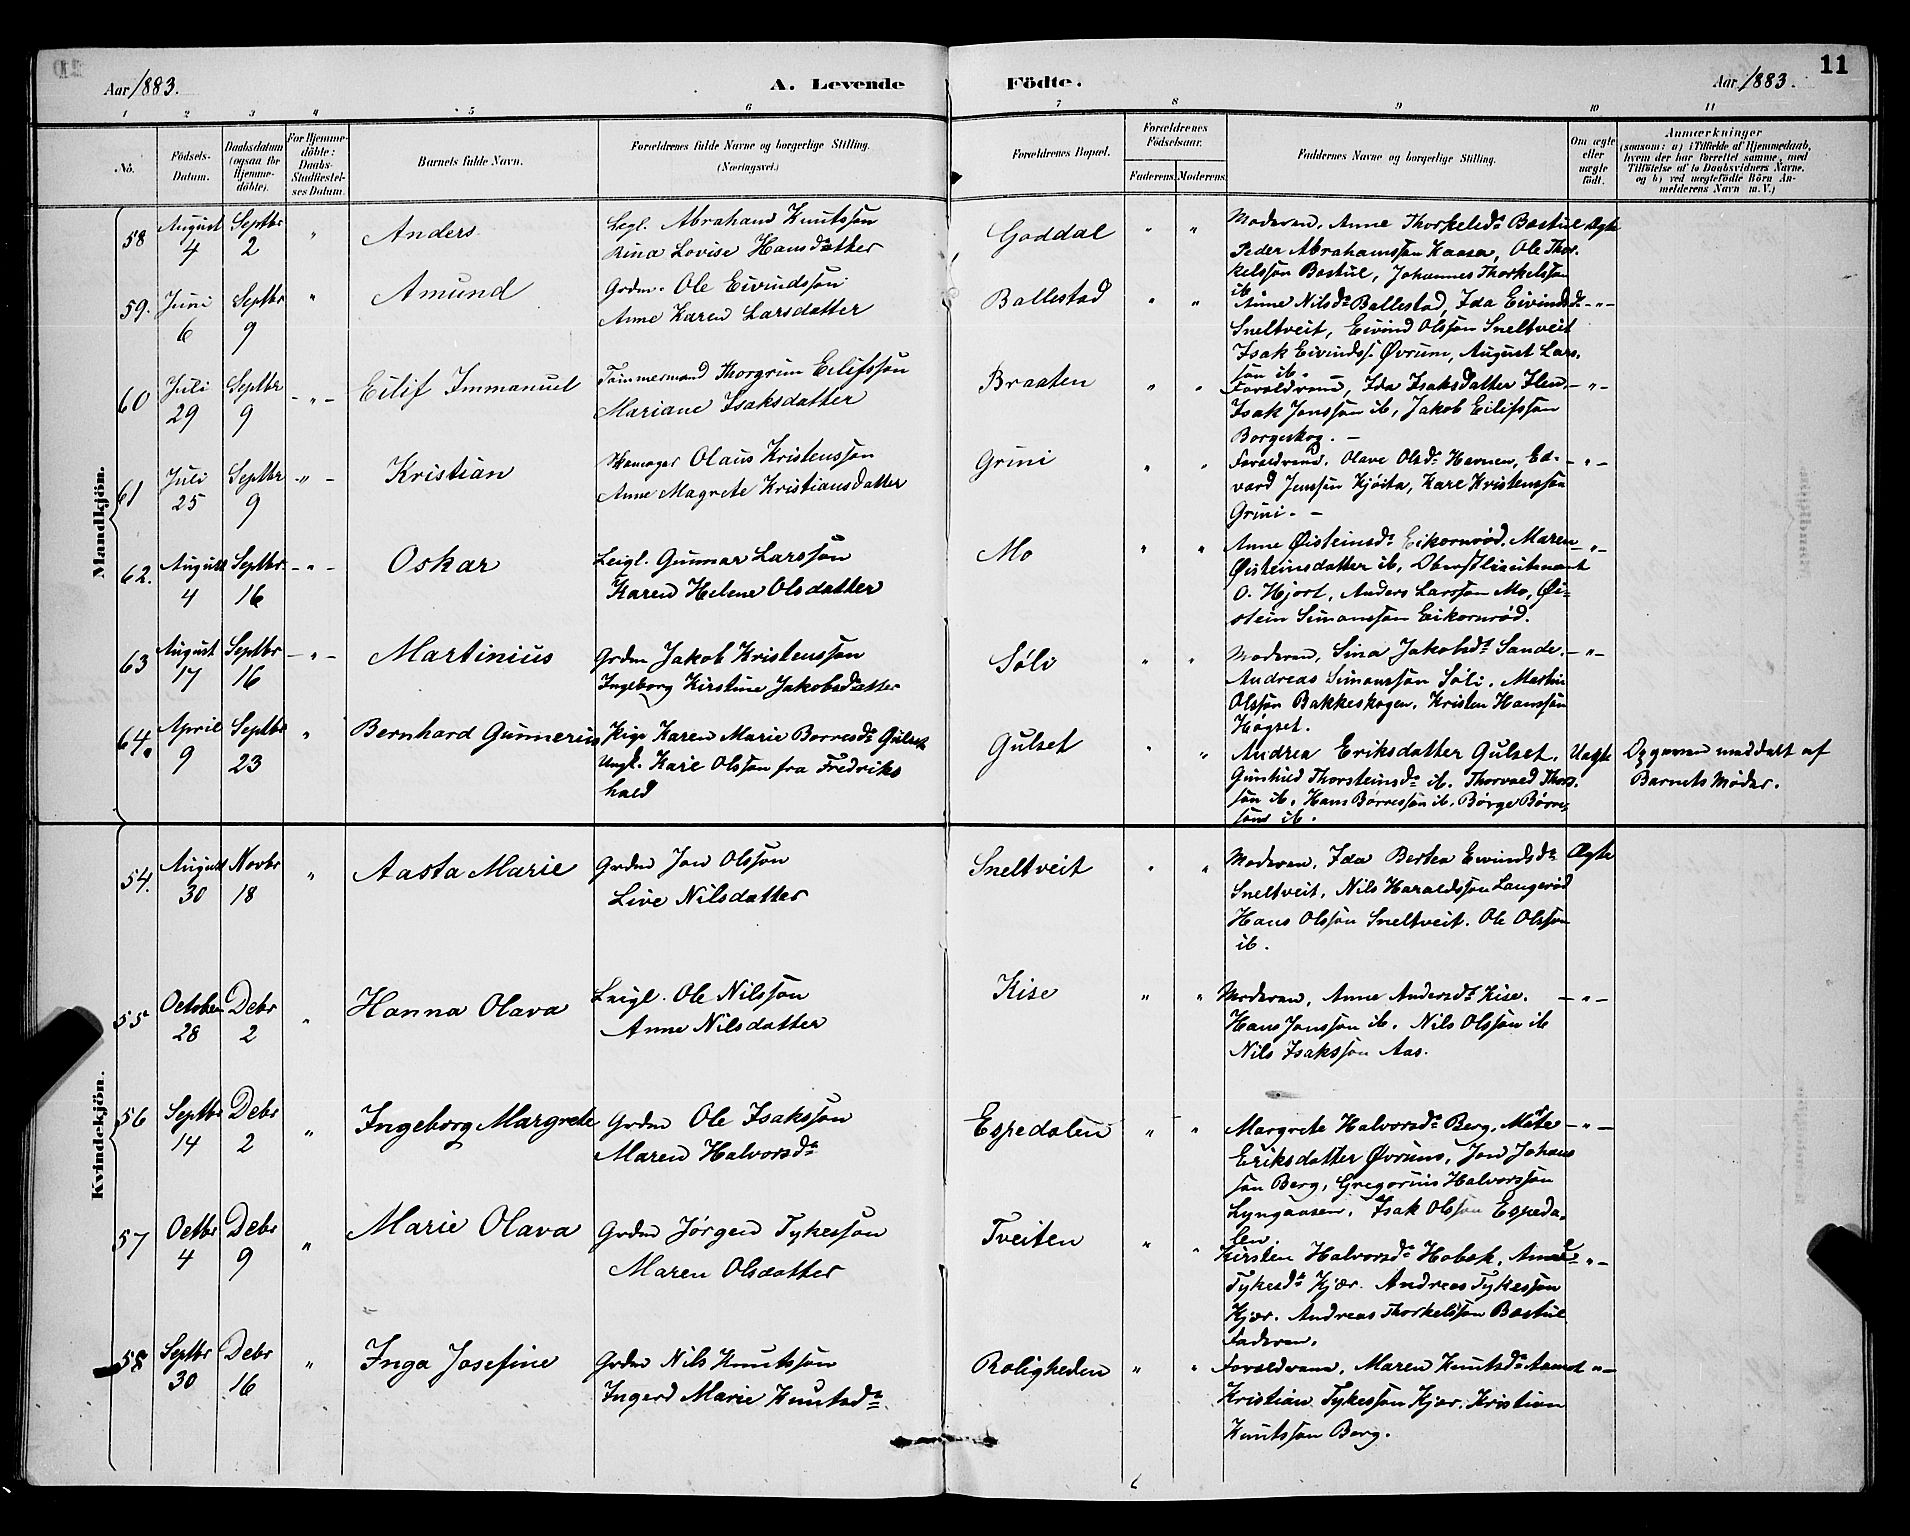 Aar 1883. A. Levende Födte. Aar 1883. 11
1 2 3 4 5 6 7 8 9 10 11
No. Födsels-Datum. Daabsdatum (ogsaa for Hjemmedöbte). For Hjemmedöbte: Daabs-Stadfæstelses Datum. Barnets fulde Navn. Forældrenes fulde Navne og borgerlige Stilling. (Næringsvei.) Forældrenes Bopæl. Forældrenes Födselsaar. Faderens. Moderens. Faddernes Navne og borgerlige Stilling. Om ægte eller uægte födt. Anmærkninger (saasom: a) i Tilfælde af Hjemmedaab, hvem der har forrettet samme, med Tilföielse af to Daabsvidners Navne, og b) ved uægtefödte Börn Anmelderens Navn m. V.)
Mandkjön.
58 August 4 Septbr 2 " Anders Leigl. Abraham Knutssön
Rina Lovise Hansdatter Goddal " " Moderen, Anne Thorkelsdr Bastul Ægte
Peder Abrahamssön Kaasa, Ole Thor-
kelssön Bastul, Johannes Thorkelssön
ib
59. Juni 6 Septbr 9 " Amund Grdm. Ole Eivindssön
Anne Karen Larsdatter Ballestad " " Anne Nilsdr Ballestad, Ida Eivindsdr -"-
Sneltveit, Eivind Olssön Sneltveit
Isak Eivindss. Øvrum, August Lars-
sön ib.
60 Juli 29 Septbr 9 -"- Eilif Immanuel Tömmermand Thorgrim Eilifssön
Mariane Isaksdatter Braaten " " Forældrene, Ida Isaksdatter Ilen, -"-
Isak Jonssön ib, Jakob Eilifssön
Borgeskog. -
61 Juli 25 Septbr 9 -"- Kristian Skomager Olaus Kristenssön
Anne Magrete Kristiansdatter Grini " " Forældrene. Olave Olsdr Havnen, Ed- -"-
vard Jenssön Kjöita, Karl Kristenssön
Grini. -
62. August 4 Septbr. 16 -"- Oskar Leigl. Gunnar Larssön
Karen Helene Olsdatter Mo " " Anne Øisteinsdr Eikornröd. Maren -"-
Øisteinsdatter ib, Oberstlieutenant
O. Hjort, Anders Larssön Mo, Øi-
stein Simonssön Eikornröd.
63 August 17 Septbr 16 -"- Martinius Grdm Jakob Kristenssön
Ingeborg Kirstine Jakobsdatter Søli " " Moderen, Sina Jakobsdr Sande. -"-
Andreas Simonssön Søli. Martin
Olssön Bakkeskogen. Kristen Hanssön
Høgset.
64. April 9 Septbr 23 " Bernhard Gunnerius Pige Karen Marie Börresdr Gulset
Ungk. Karl Olssön fra Fredriks
hald Gulset " " Andrea Eriksdatter Gulset. Uægte Opgaven meddelt af
Gunhild Thorsteinsdr ib. Thorvald Thors- Barnets Moder.
sön ib. Hans Börressön ib. Börge Börre-
söns ib.
Kvindekjön.
54. August 30 Novbr 18 " Aasta Marie Grdm Jon Olssön
Live Nilsdatter Sneltveit " " Moderen, Ida Bertea Eivindsdr Ægte
Sneltveit, Nils Haraldssön Langeröd
Hans Olssön Sneltveit. Ole Olssön
ib.
55 October 28 Debr 2 " Hanna Olava Leigl. Ole Nilssön
Anne Nilsdatter Kise " " Moderen, Anne Andersdr Kise. -"-
Hans Jonssön ib. Nils Olssön ib
Nils Isakssön Aas.
56 Septbr 14 Debr 2 " Ingeborg Margrete Grdm Ole Isakssön
Maren Halvorsdr Espedalen " " Margrete Halvorsdr Berg, Mäte -"-
Eriksdatter Øvrum, Jon Johans
sön Berg, Gregorius Halvorssön
Lyngaasen, Isak Olssön Espeda-
len.
57 Octbr 4 Debr 9 " Marie Olava Grdm Jørgen Tykessön
Maren Olsdatter Tveiten " " Kirsten Halvorsdr Hobæk, Anne -"-
Tykesdr Kjær. Andreas Tykessön
Kjær. Andreas Thorkelssön Bastul
Faderen.
58 Septbr 30 Debr 16 " Inga Josefine Grdm Nils Knutssön
Ingerd Marie Knutsdr Roligheden " " Forældrene, Maren Knutsdr Aamot -"-
Kristian Tykessön Kjær. Kristian
Knutssön Berg.